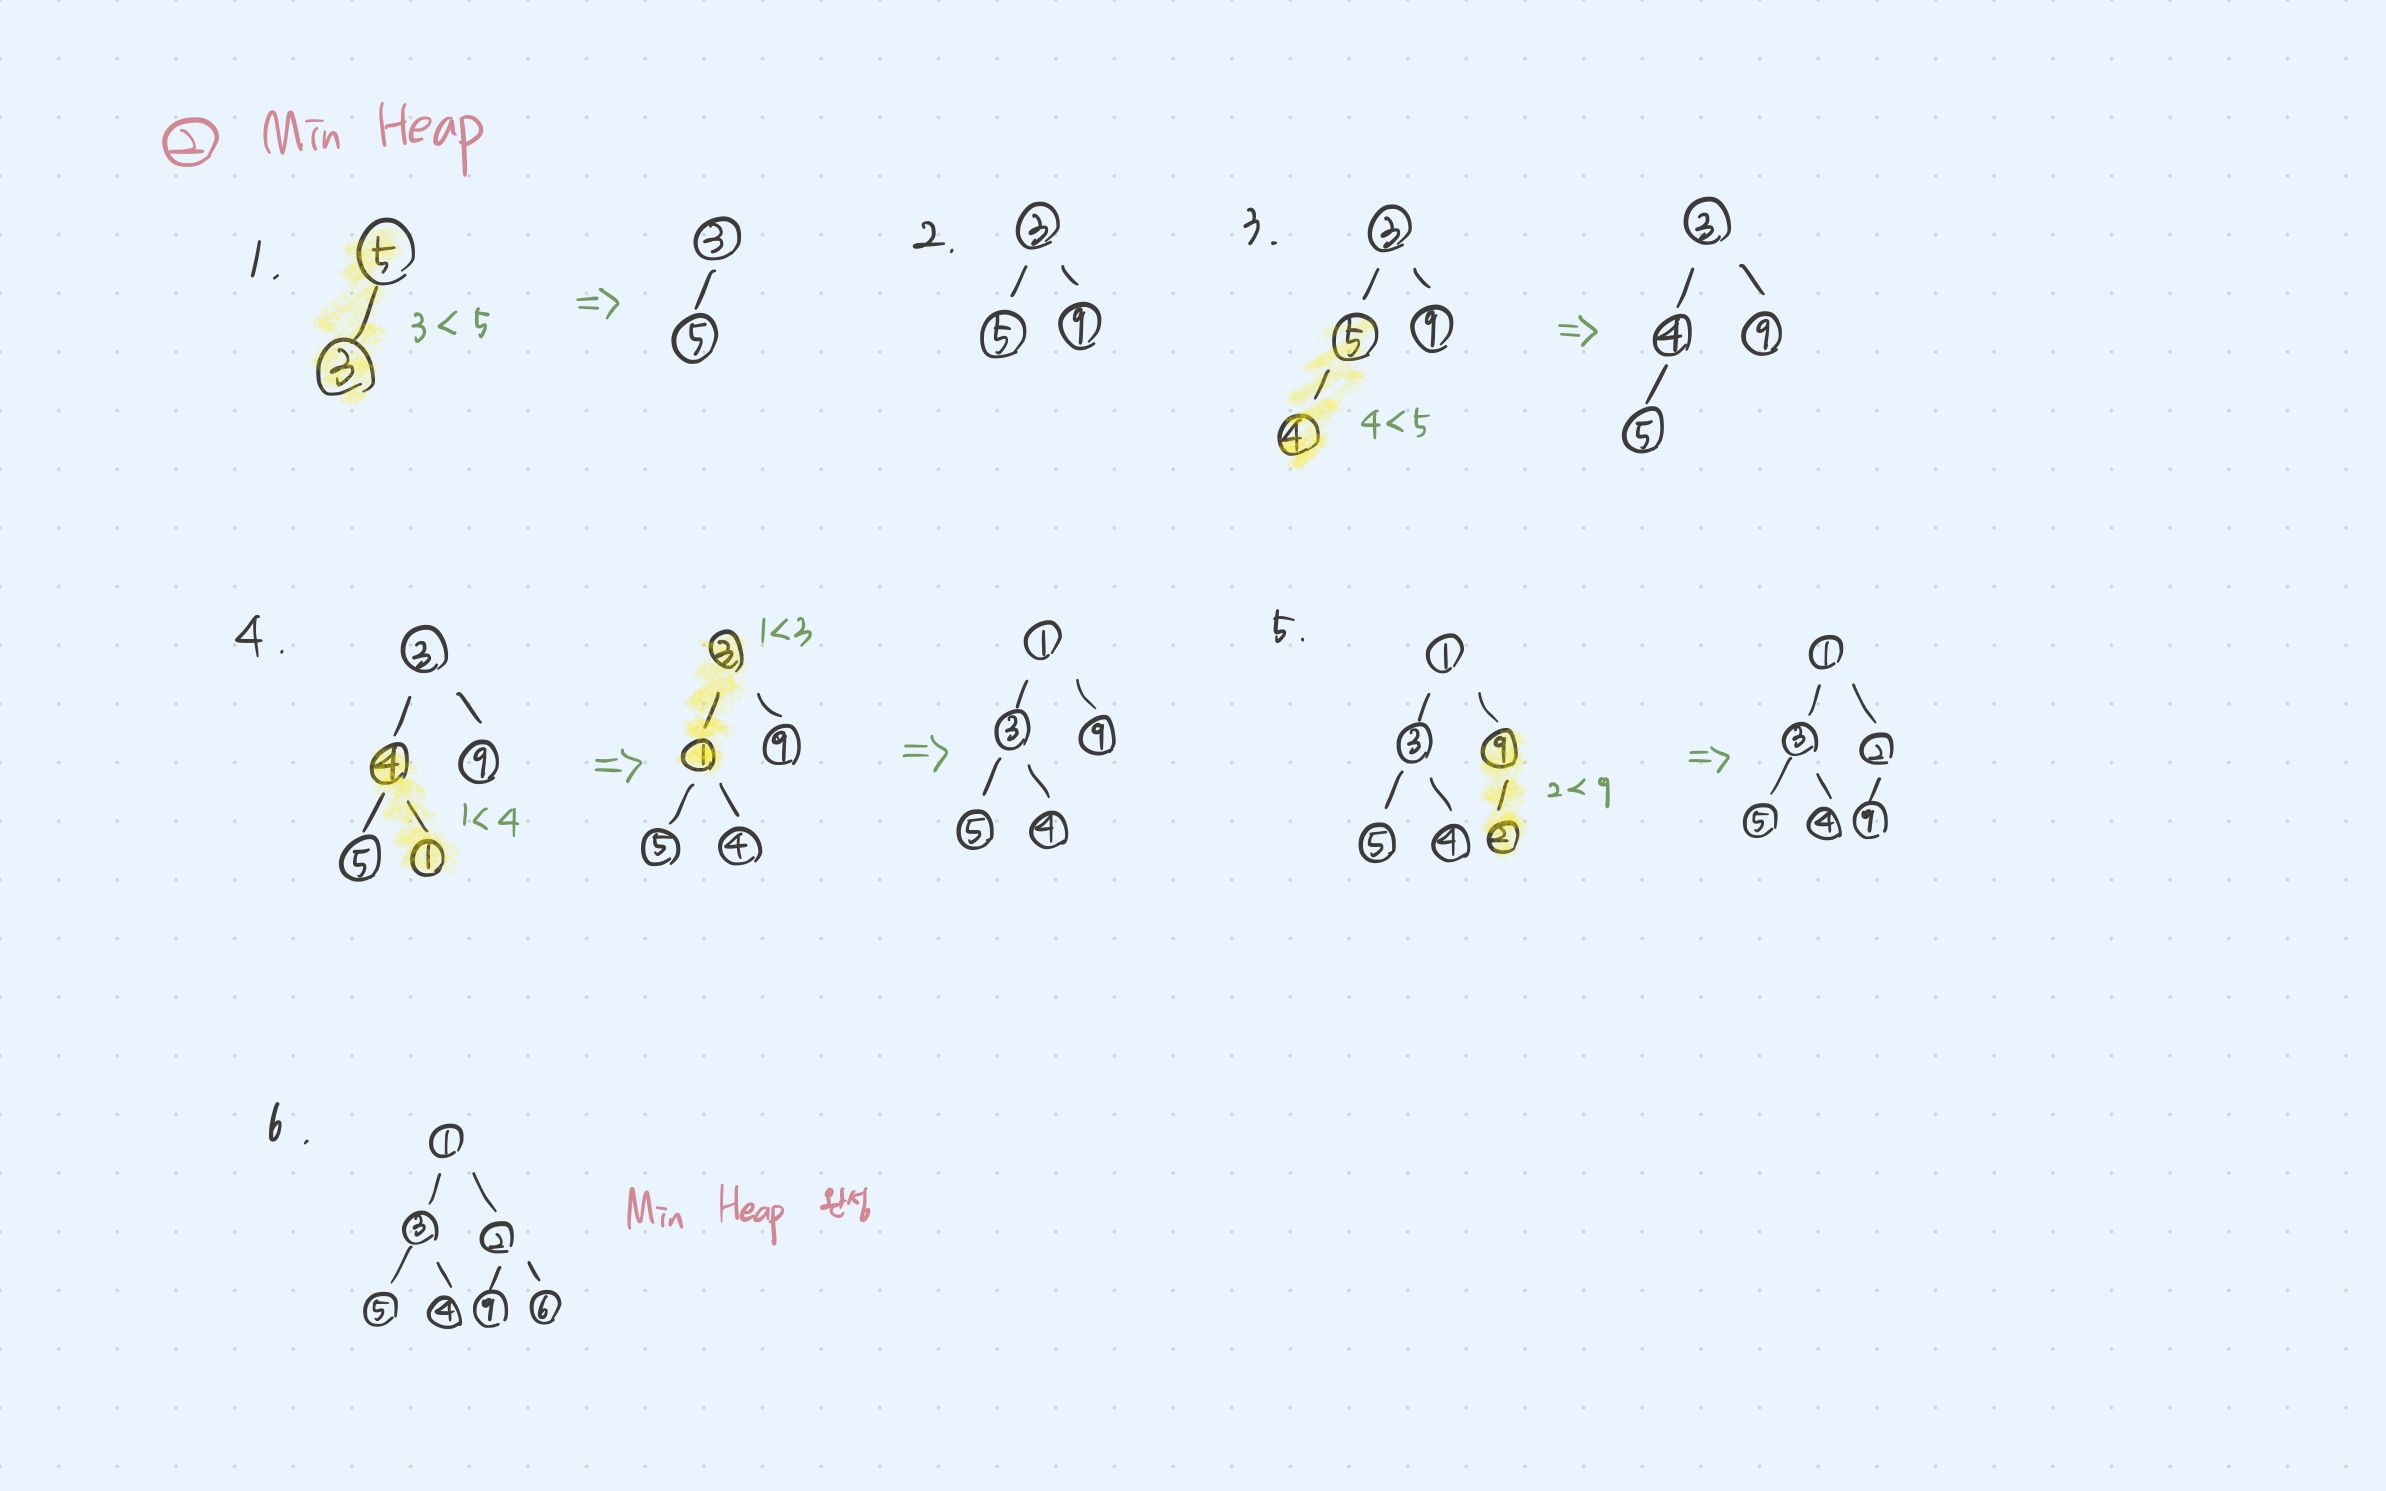 ② Min Heap
1.
5
3
3 < 5
=>
3
5
2.
3
5 9
3.
3
5 9
4
4 < 5
=>
3
4 9
5
4.
3
4 9
5 1
1 < 4
=>
3
1 < 3
1 9
5 4
=>
1
3 9
5 4
5.
1
3 9
5 4 2
2 < 9
=>
1
3 2
5 4 9
6.
1
3 2
5 4 9 6
Min Heap